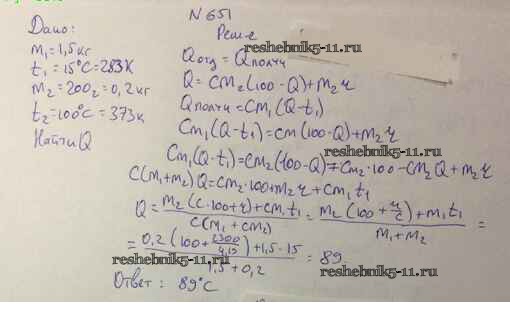 N 651
Дано:
m₁ = 1,5 кг
t₁ = 15°C = 283K
m₂ = 200г = 0,2 кг
t₂ = 100°C = 373K
Найти Q
Реш-е
reshebnik5-11.ru
Qотд = Qполуч
Q = cm₂(100-Q)+m₂r
Qполуч = cm₁(Q-t₁)
cm₁(Q-t₁) = cm(100-Q)+m₂r
reshebnik5-11.ru
cm₁(Q-t₁) = cm₂(100-Q) = cm₂·100 - cm₂Q + m₂r
c(m₁+m₂)Q = cm₂·100 + m₂r + cm₁t₁
Q = m₂(c·100+r)+cm₁t₁ / c(m₁+cm₂) = m₂(100+r/c)+m₁t₁ / m₁+m₂ =
= 0,2(100+2300/4,19)+1,5·15 / 1,5+0,2 = 89
reshebnik5-11.ru
reshebnik5-11.ru
Ответ: 89°C